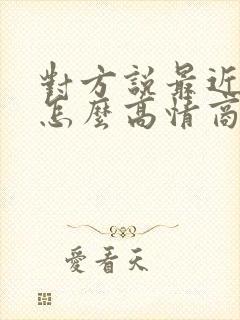 對方說最近
怎麼高情商
愛看天